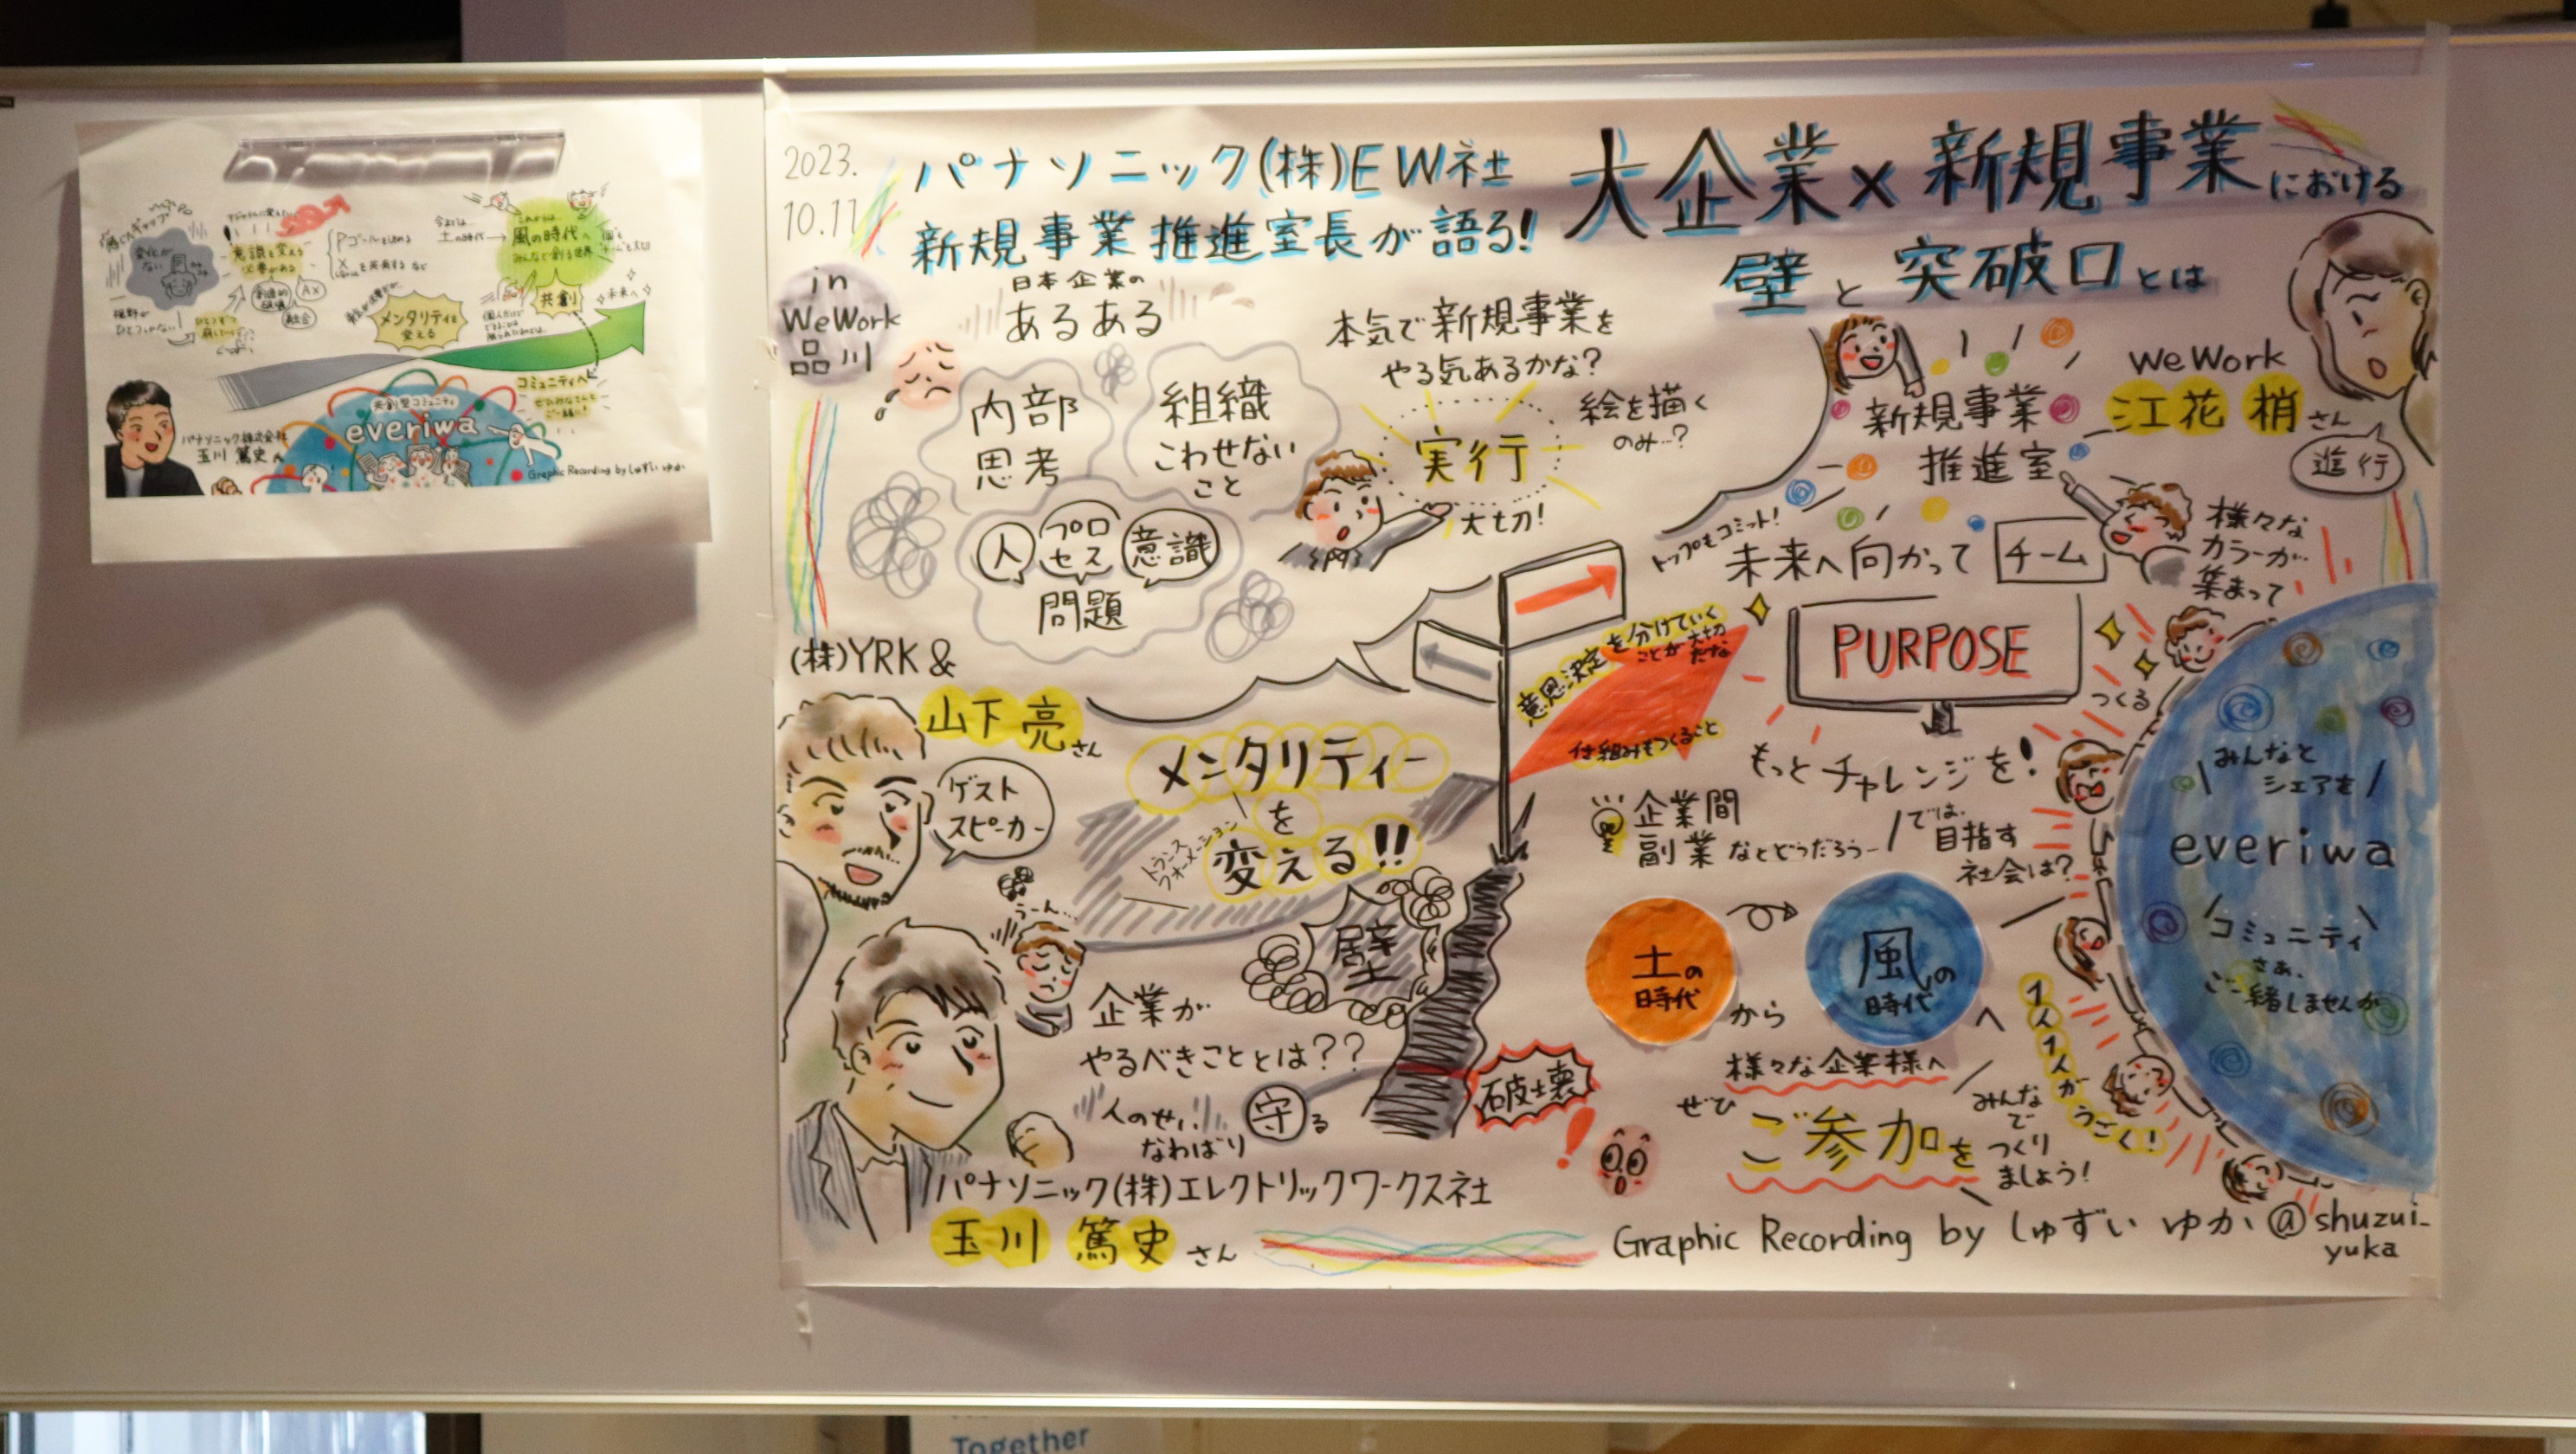 2023.
10.11
in
WeWork
品川
パナソニック(株)EW社
新規事業推進室長が語る!
大企業×新規事業における
壁と突破口とは
日本企業の
あるある
内部
思考
組織
こわせない
こと
人
プロ
セス
意識
問題
本気で新規事業を
やる気あるかな?
絵を描く
のみ…?
実行
大切!
WeWork
江花 梢さん
進行
新規事業
推進室
様々な
カラーが
集まって
トップもコミット!
未来へ向かって
チーム
PURPOSE
つくる
意思決定を分けていく
ことが大切
だな
仕組みをつくること
もっとチャレンジを!
企業間
副業などどうだろう
では、
目指す
社会は?
(株)YRK&
山下 亮さん
ゲスト
スピーカー
メンタリティー
を
変える!!
トランス
フォーメーション
うーん…
壁
企業が
やるべきこととは??
人のせい
なわばり
守る
破壊
!
土の
時代
から
風の
時代
へ
様々な企業様へ
ぜひ
ご参加を
みんな
で
つくり
ましょう!
1人1人がうごく!
みんなと
シェアを
everiwa
コミュニティ
さぁ、
ご一緒しませんか
パナソニック(株)エレクトリックワークス社
玉川 篤史さん
Graphic Recording by しゅずい ゆか @shuzui_
yuka
変化が
ない
視野が
ひとつしかない
意識を変える
必要がある
AX
融合
今までは…
土の時代→
これからは
風の時代へ
みんなで創る世界
共創
未来へ
メンタリティを
変える
コミュニティへ
ぜひみなさんも
ご一緒に!
共創型コミュニティ
everiwa
パナソニック株式会社
玉川 篤史
Graphic Recording by しゅずい ゆか
Together